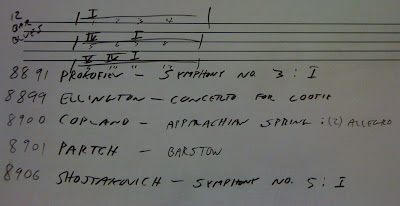 12 I
1 2 3 4
BAR IV I
BLUES 5
IV IV I
9 10 11 12
8891 PROKOFIEV - SYMPHONY NO. 3 : I
8899 ELLINGTON - CONCERTO FOR COOTIE
8900 COPLAND - APPALACHIAN SPRING : (2) ALLEGRO
8901 PARTCH - BARSTOW
8906 SHOSTAKOVICH - SYMPHONY NO. 5 : I